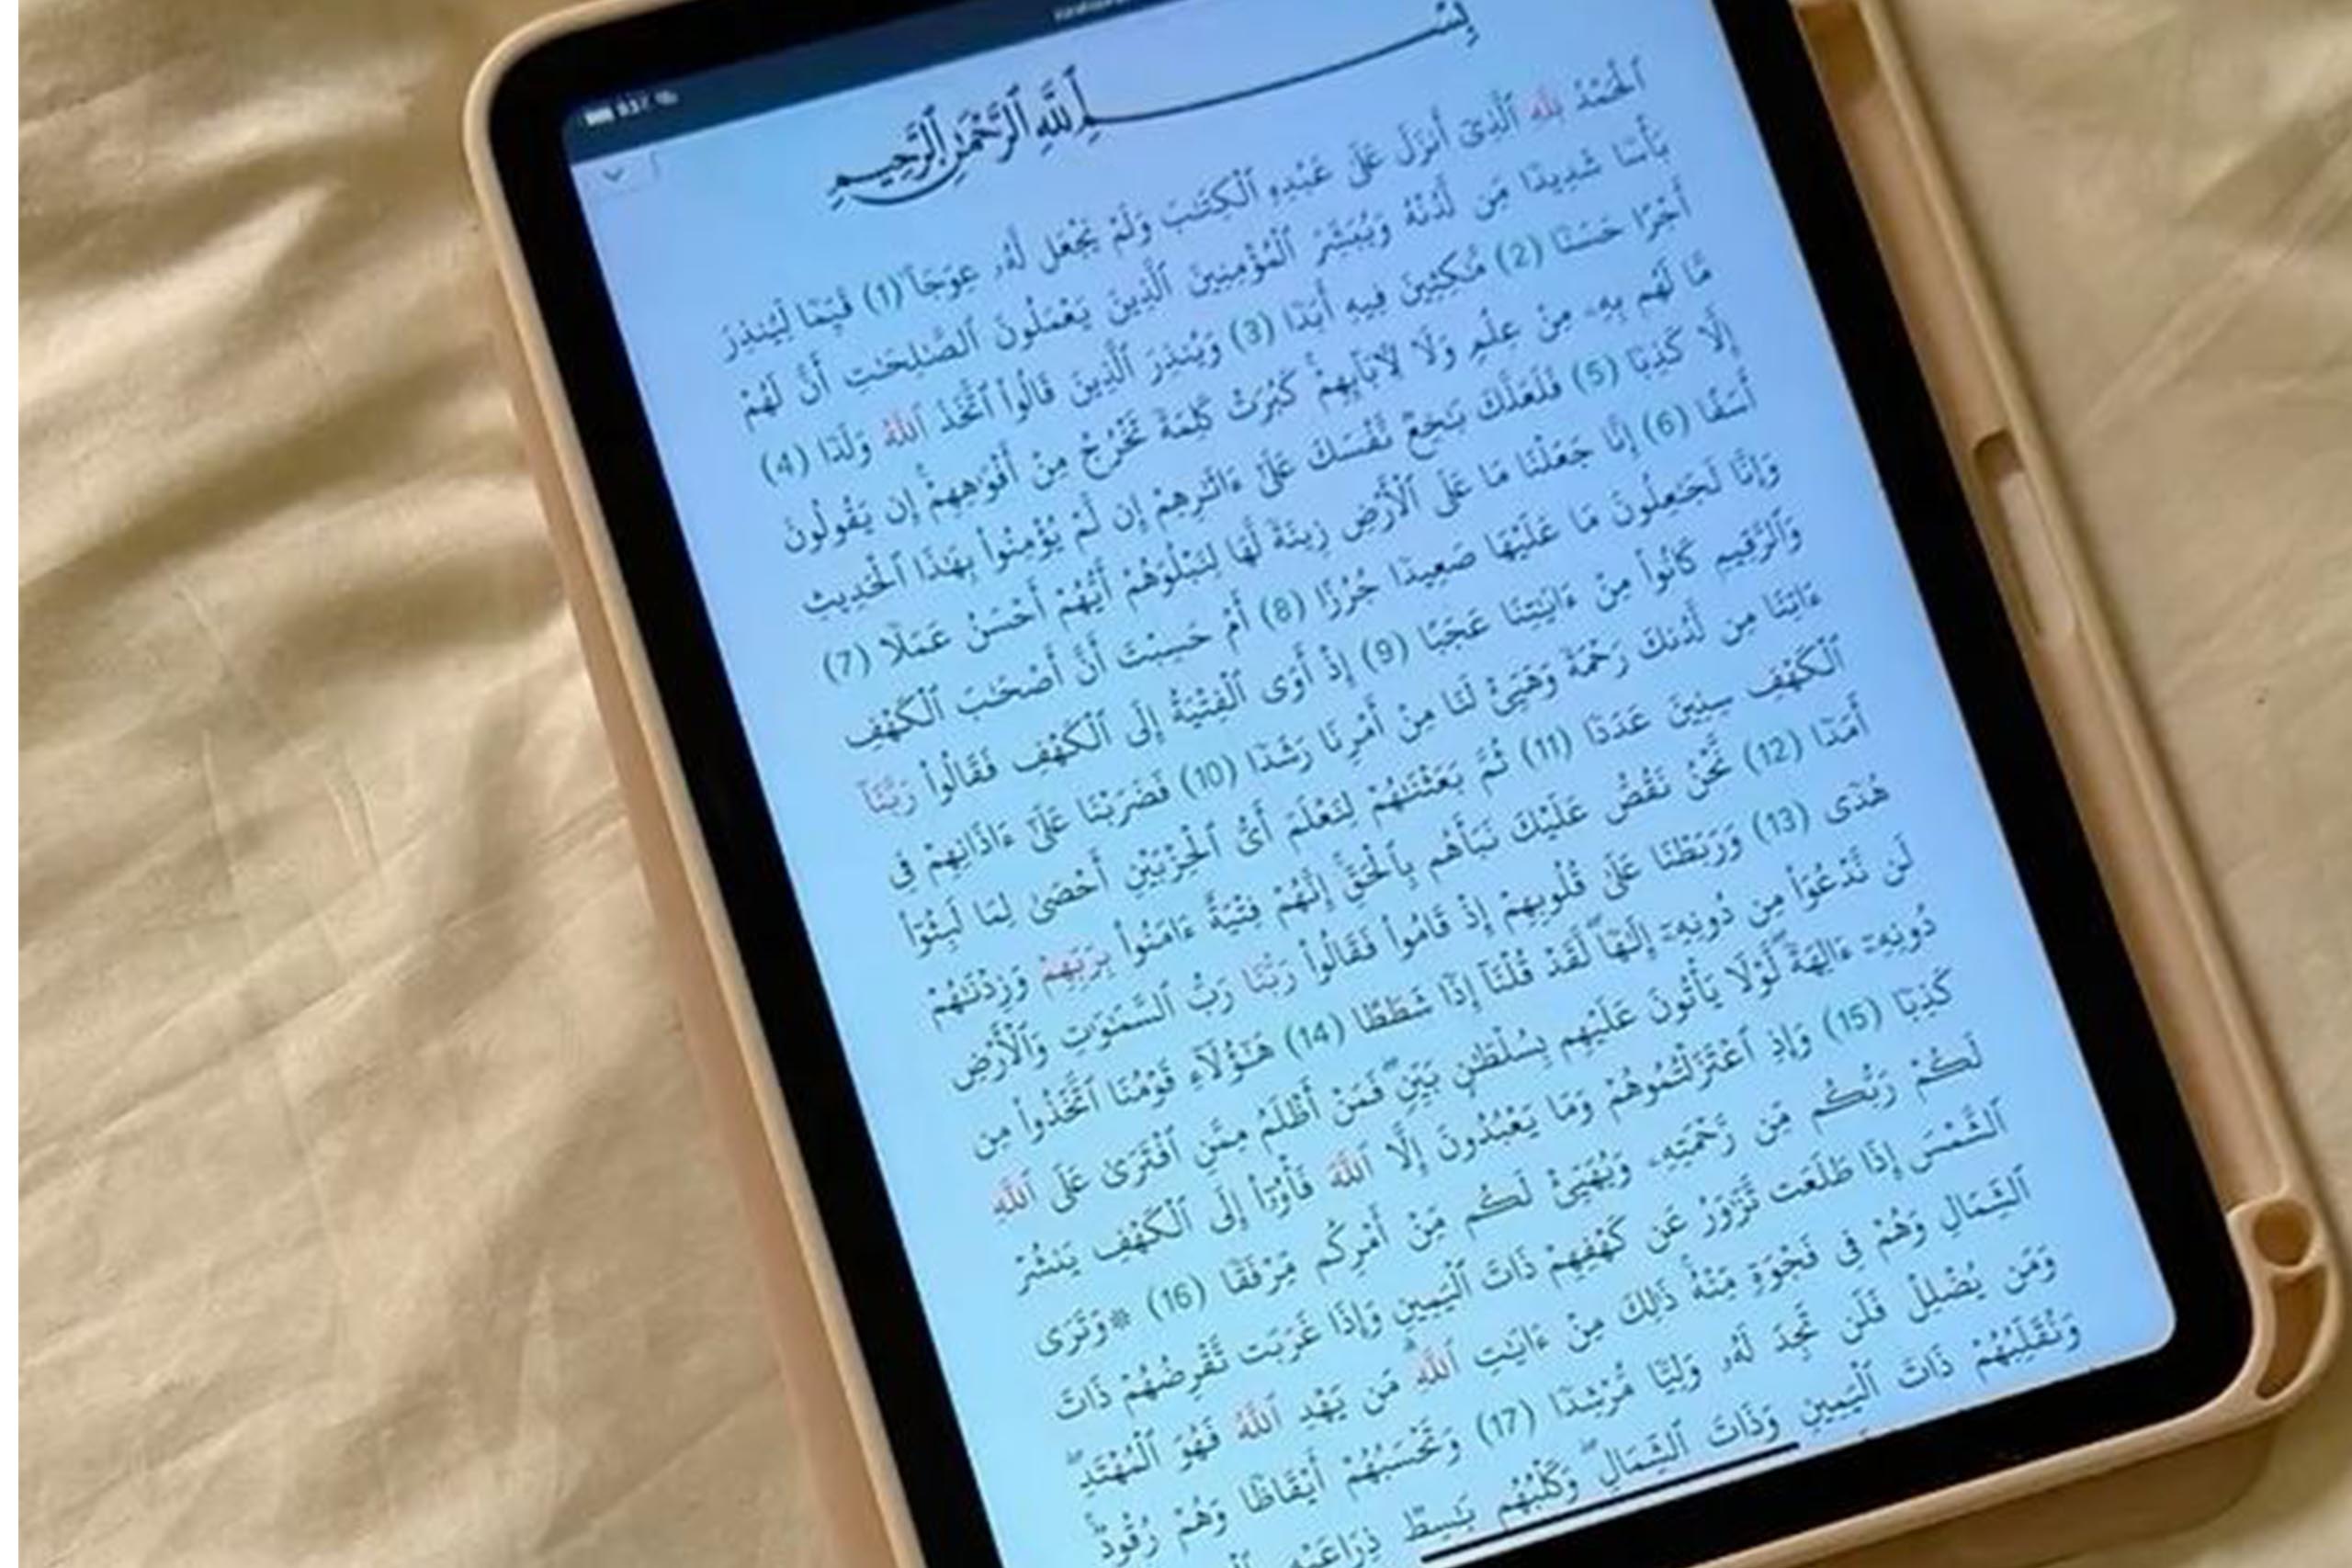 بِسْمِ ٱللَّهِ ٱلرَّحْمَٰنِ ٱلرَّحِيمِ
ٱلْحَمْدُ لِلَّهِ ٱلَّذِىٓ أَنزَلَ عَلَىٰ عَبْدِهِ ٱلْكِتَٰبَ وَلَمْ يَجْعَل لَّهُۥ عِوَجَاۜ (1) قَيِّمًا لِّيُنذِرَ
بَأْسًا شَدِيدًا مِّن لَّدُنْهُ وَيُبَشِّرَ ٱلْمُؤْمِنِينَ ٱلَّذِينَ يَعْمَلُونَ ٱلصَّٰلِحَٰتِ أَنَّ لَهُمْ
أَجْرًا حَسَنًا (2) مَّٰكِثِينَ فِيهِ أَبَدًا (3) وَيُنذِرَ ٱلَّذِينَ قَالُوا۟ ٱتَّخَذَ ٱللَّهُ وَلَدًا (4)
مَّا لَهُم بِهِۦ مِنْ عِلْمٍ وَلَا لِءَابَآئِهِمْ كَبُرَتْ كَلِمَةً تَخْرُجُ مِنْ أَفْوَٰهِهِمْ إِن يَقُولُونَ
إِلَّا كَذِبًا (5) فَلَعَلَّكَ بَٰخِعٌ نَّفْسَكَ عَلَىٰٓ ءَاثَٰرِهِمْ إِن لَّمْ يُؤْمِنُوا۟ بِهَٰذَا ٱلْحَدِيثِ
أَسَفًا (6) إِنَّا جَعَلْنَا مَا عَلَى ٱلْأَرْضِ زِينَةً لَّهَا لِنَبْلُوَهُمْ أَيُّهُمْ أَحْسَنُ عَمَلًا (7)
وَإِنَّا لَجَٰعِلُونَ مَا عَلَيْهَا صَعِيدًا جُرُزًا (8) أَمْ حَسِبْتَ أَنَّ أَصْحَٰبَ ٱلْكَهْفِ
وَٱلرَّقِيمِ كَانُوا۟ مِنْ ءَايَٰتِنَا عَجَبًا (9) إِذْ أَوَى ٱلْفِتْيَةُ إِلَى ٱلْكَهْفِ فَقَالُوا۟ رَبَّنَآ
ءَاتِنَا مِن لَّدُنكَ رَحْمَةً وَهَيِّئْ لَنَا مِنْ أَمْرِنَا رَشَدًا (10) فَضَرَبْنَا عَلَىٰٓ ءَاذَانِهِمْ فِى
ٱلْكَهْفِ سِنِينَ عَدَدًا (11) ثُمَّ بَعَثْنَٰهُمْ لِنَعْلَمَ أَىُّ ٱلْحِزْبَيْنِ أَحْصَىٰ لِمَا لَبِثُوٓا۟
أَمَدًا (12) نَّحْنُ نَقُصُّ عَلَيْكَ نَبَأَهُم بِٱلْحَقِّ إِنَّهُمْ فِتْيَةٌ ءَامَنُوا۟ بِرَبِّهِمْ وَزِدْنَٰهُمْ
هُدًى (13) وَرَبَطْنَا عَلَىٰ قُلُوبِهِمْ إِذْ قَامُوا۟ فَقَالُوا۟ رَبُّنَا رَبُّ ٱلسَّمَٰوَٰتِ وَٱلْأَرْضِ
لَن نَّدْعُوَا۟ مِن دُونِهِۦٓ إِلَٰهًاۖ لَّقَدْ قُلْنَآ إِذًا شَطَطًا (14) هَٰٓؤُلَآءِ قَوْمُنَا ٱتَّخَذُوا۟ مِن
دُونِهِۦٓ ءَالِهَةًۖ لَّوْلَا يَأْتُونَ عَلَيْهِم بِسُلْطَٰنٍۭ بَيِّنٍۖ فَمَنْ أَظْلَمُ مِمَّنِ ٱفْتَرَىٰ عَلَى ٱللَّهِ
كَذِبًا (15) وَإِذِ ٱعْتَزَلْتُمُوهُمْ وَمَا يَعْبُدُونَ إِلَّا ٱللَّهَ فَأْوُۥٓا۟ إِلَى ٱلْكَهْفِ يَنشُرْ
لَكُمْ رَبُّكُم مِّن رَّحْمَتِهِۦ وَيُهَيِّئْ لَكُم مِّنْ أَمْرِكُم مِّرْفَقًا (16) ۞وَتَرَى
ٱلشَّمْسَ إِذَا طَلَعَت تَّزَٰوَرُ عَن كَهْفِهِمْ ذَاتَ ٱلْيَمِينِ وَإِذَا غَرَبَت تَّقْرِضُهُمْ ذَاتَ
ٱلشِّمَالِ وَهُمْ فِى فَجْوَةٍ مِّنْهُۚ ذَٰلِكَ مِنْ ءَايَٰتِ ٱللَّهِۗ مَن يَهْدِ ٱللَّهُ فَهُوَ ٱلْمُهْتَدِۖ
وَمَن يُضْلِلْ فَلَن تَجِدَ لَهُۥ وَلِيًّا مُّرْشِدًا (17) وَتَحْسَبُهُمْ أَيْقَاظًا وَهُمْ رُقُودٌۚ
وَنُقَلِّبُهُمْ ذَاتَ ٱلْيَمِينِ وَذَاتَ ٱلشِّمَالِۖ وَكَلْبُهُم بَٰسِطٌ ذِرَاعَيْهِ